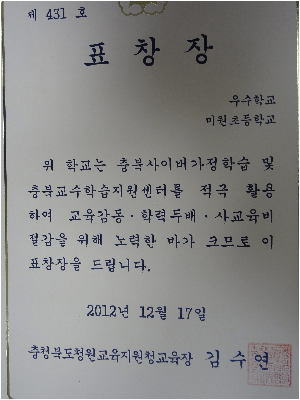 제 431 호
표 창 장
우수학교
미원초등학교
위 학교는 충북사이버가정학습 및
충북교수학습지원센터를 적극 활용
하여 교육감동·학력두배·사교육비
절감을 위해 노력한 바가 크므로 이
표창장을 드립니다.
2012년 12월 17일
충청북도청원교육지원청교육장 김 수 연